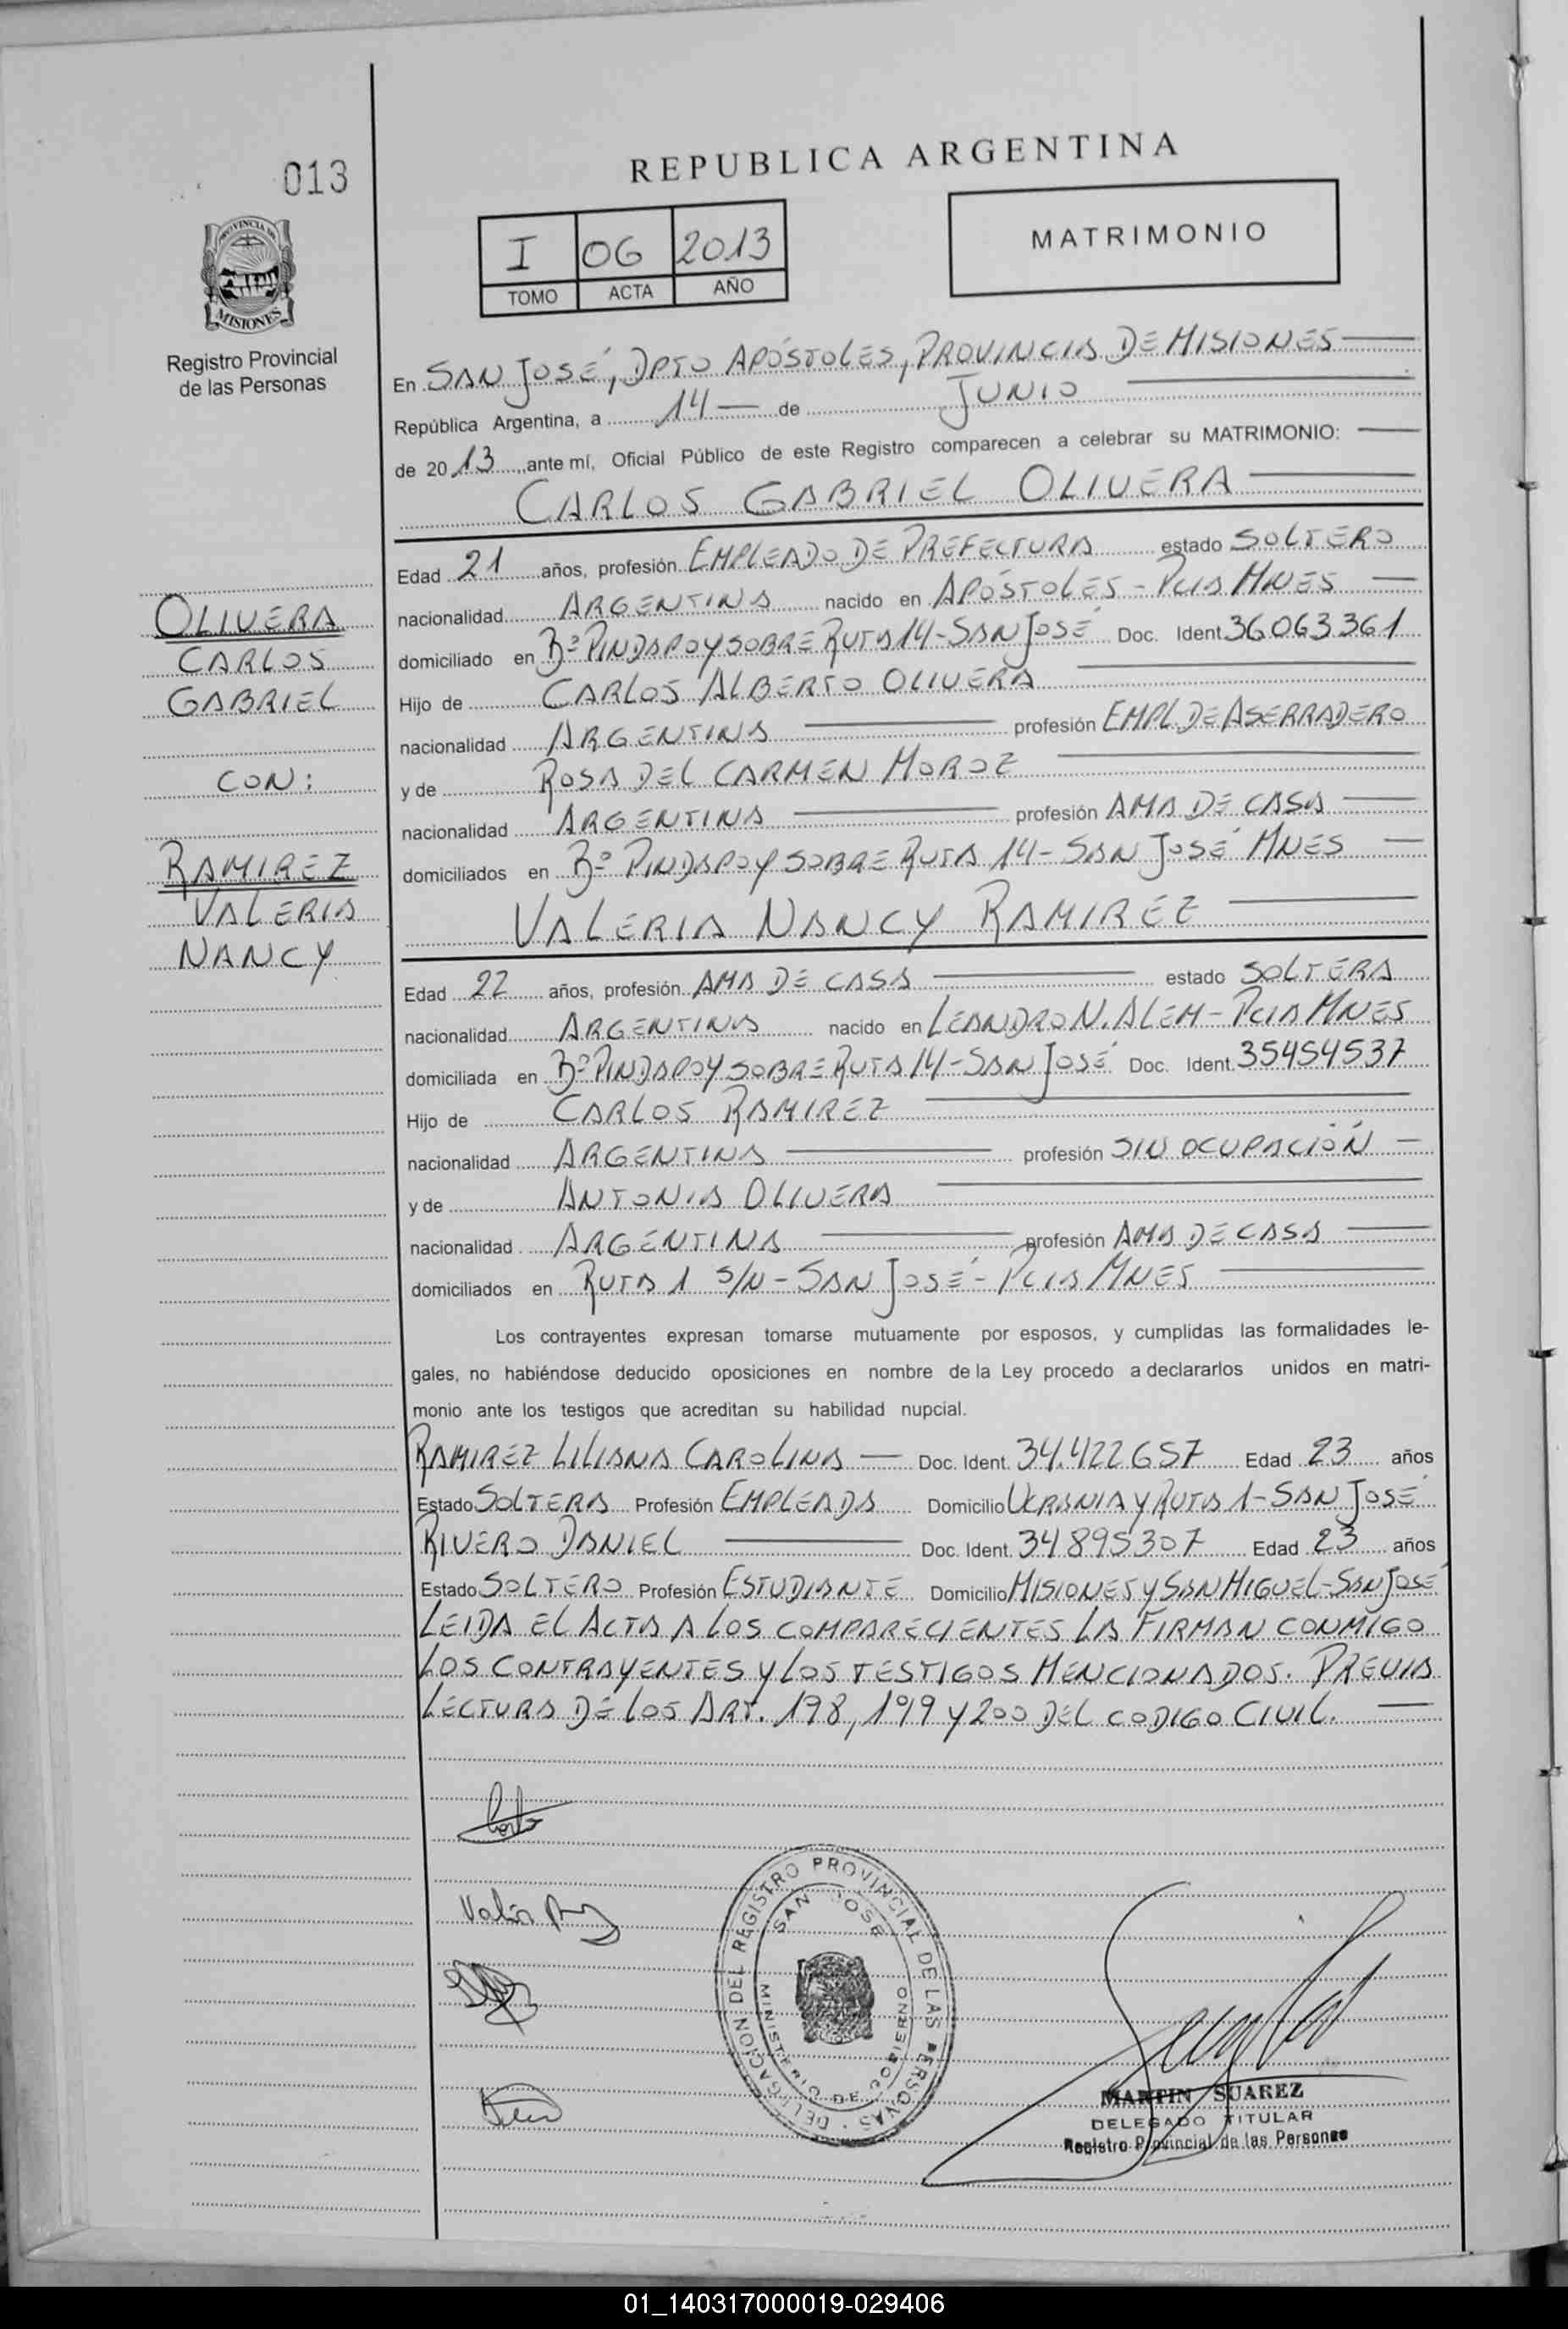 013
REPUBLICA ARGENTINA
PROVINCIA DE
MISIONES
Registro Provincial
de las Personas
I 06 2013
TOMO ACTA AÑO
MATRIMONIO
En SAN JOSÉ, DPTO APÓSTOLES, PROVINCIA DE MISIONES
República Argentina, a 14 de JUNIO
de 2013, ante mí, Oficial Público de este Registro comparecen a celebrar su MATRIMONIO:
CARLOS GABRIEL OLIVERA
Edad 21 años, profesión EMPLEADO DE PREFECTURA estado SOLTERO
nacionalidad ARGENTINA nacido en APÓSTOLES - PCIA MNES
domiciliado en Bº PINDAPOY SOBRE RUTA 14 - SAN JOSÉ Doc. Ident. 36063361
Hijo de CARLOS ALBERTO OLIVERA
nacionalidad ARGENTINA profesión EMPL. DE ASERRADERO
y de ROSA DEL CARMEN MOROZ
nacionalidad ARGENTINA profesión AMA DE CASA
domiciliados en Bº PINDAPOY SOBRE RUTA 14 - SAN JOSÉ MNES
VALERIA NANCY RAMIREZ
OLIVERA
CARLOS
GABRIEL
CON:
RAMIREZ
VALERIA
NANCY
Edad 22 años, profesión AMA DE CASA estado SOLTERA
nacionalidad ARGENTINA nacido en LEANDRO N. ALEM - PCIA MNES
domiciliada en Bº PINDAPOY SOBRE RUTA 14 - SAN JOSÉ Doc. Ident. 35454537
Hijo de CARLOS RAMIREZ
nacionalidad ARGENTINA profesión SIN OCUPACIÓN
y de ANTONIA OLIVERA
nacionalidad ARGENTINA profesión AMA DE CASA
domiciliados en RUTA 1 S/N - SAN JOSÉ - PCIA MNES
Los contrayentes expresan tomarse mutuamente por esposos, y cumplidas las formalidades le-
gales, no habiéndose deducido oposiciones en nombre de la Ley procedo a declararlos unidos en matri-
monio ante los testigos que acreditan su habilidad nupcial.
RAMIREZ LILIANA CAROLINA Doc. Ident. 34.422657 Edad 23 años
Estado SOLTERA Profesión EMPLEADA Domicilio UCRANIA Y RUTA 1 - SAN JOSÉ
RIVERO DANIEL Doc. Ident. 34895307 Edad 23 años
Estado SOLTERO Profesión ESTUDIANTE Domicilio MISIONES Y SAN MIGUEL - SAN JOSÉ
LEIDA EL ACTA A LOS COMPARECIENTES LA FIRMAN CONMIGO
LOS CONTRAYENTES Y LOS TESTIGOS MENCIONADOS. PREVIA
LECTURA DE LOS ART. 198, 199 Y 200 DEL CODIGO CIVIL.
DELEGACION DEL REGISTRO PROVINCIAL DE LAS PERSONAS
SAN JOSE
MINISTERIO DE GOBIERNO
MARTIN SUAREZ
DELEGADO TITULAR
Registro Provincial de las Personas
01_140317000019-029406